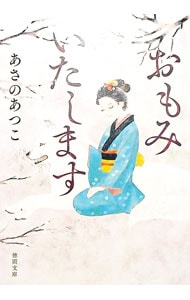 おもみ
いたします
あさのあつこ
徳間文庫